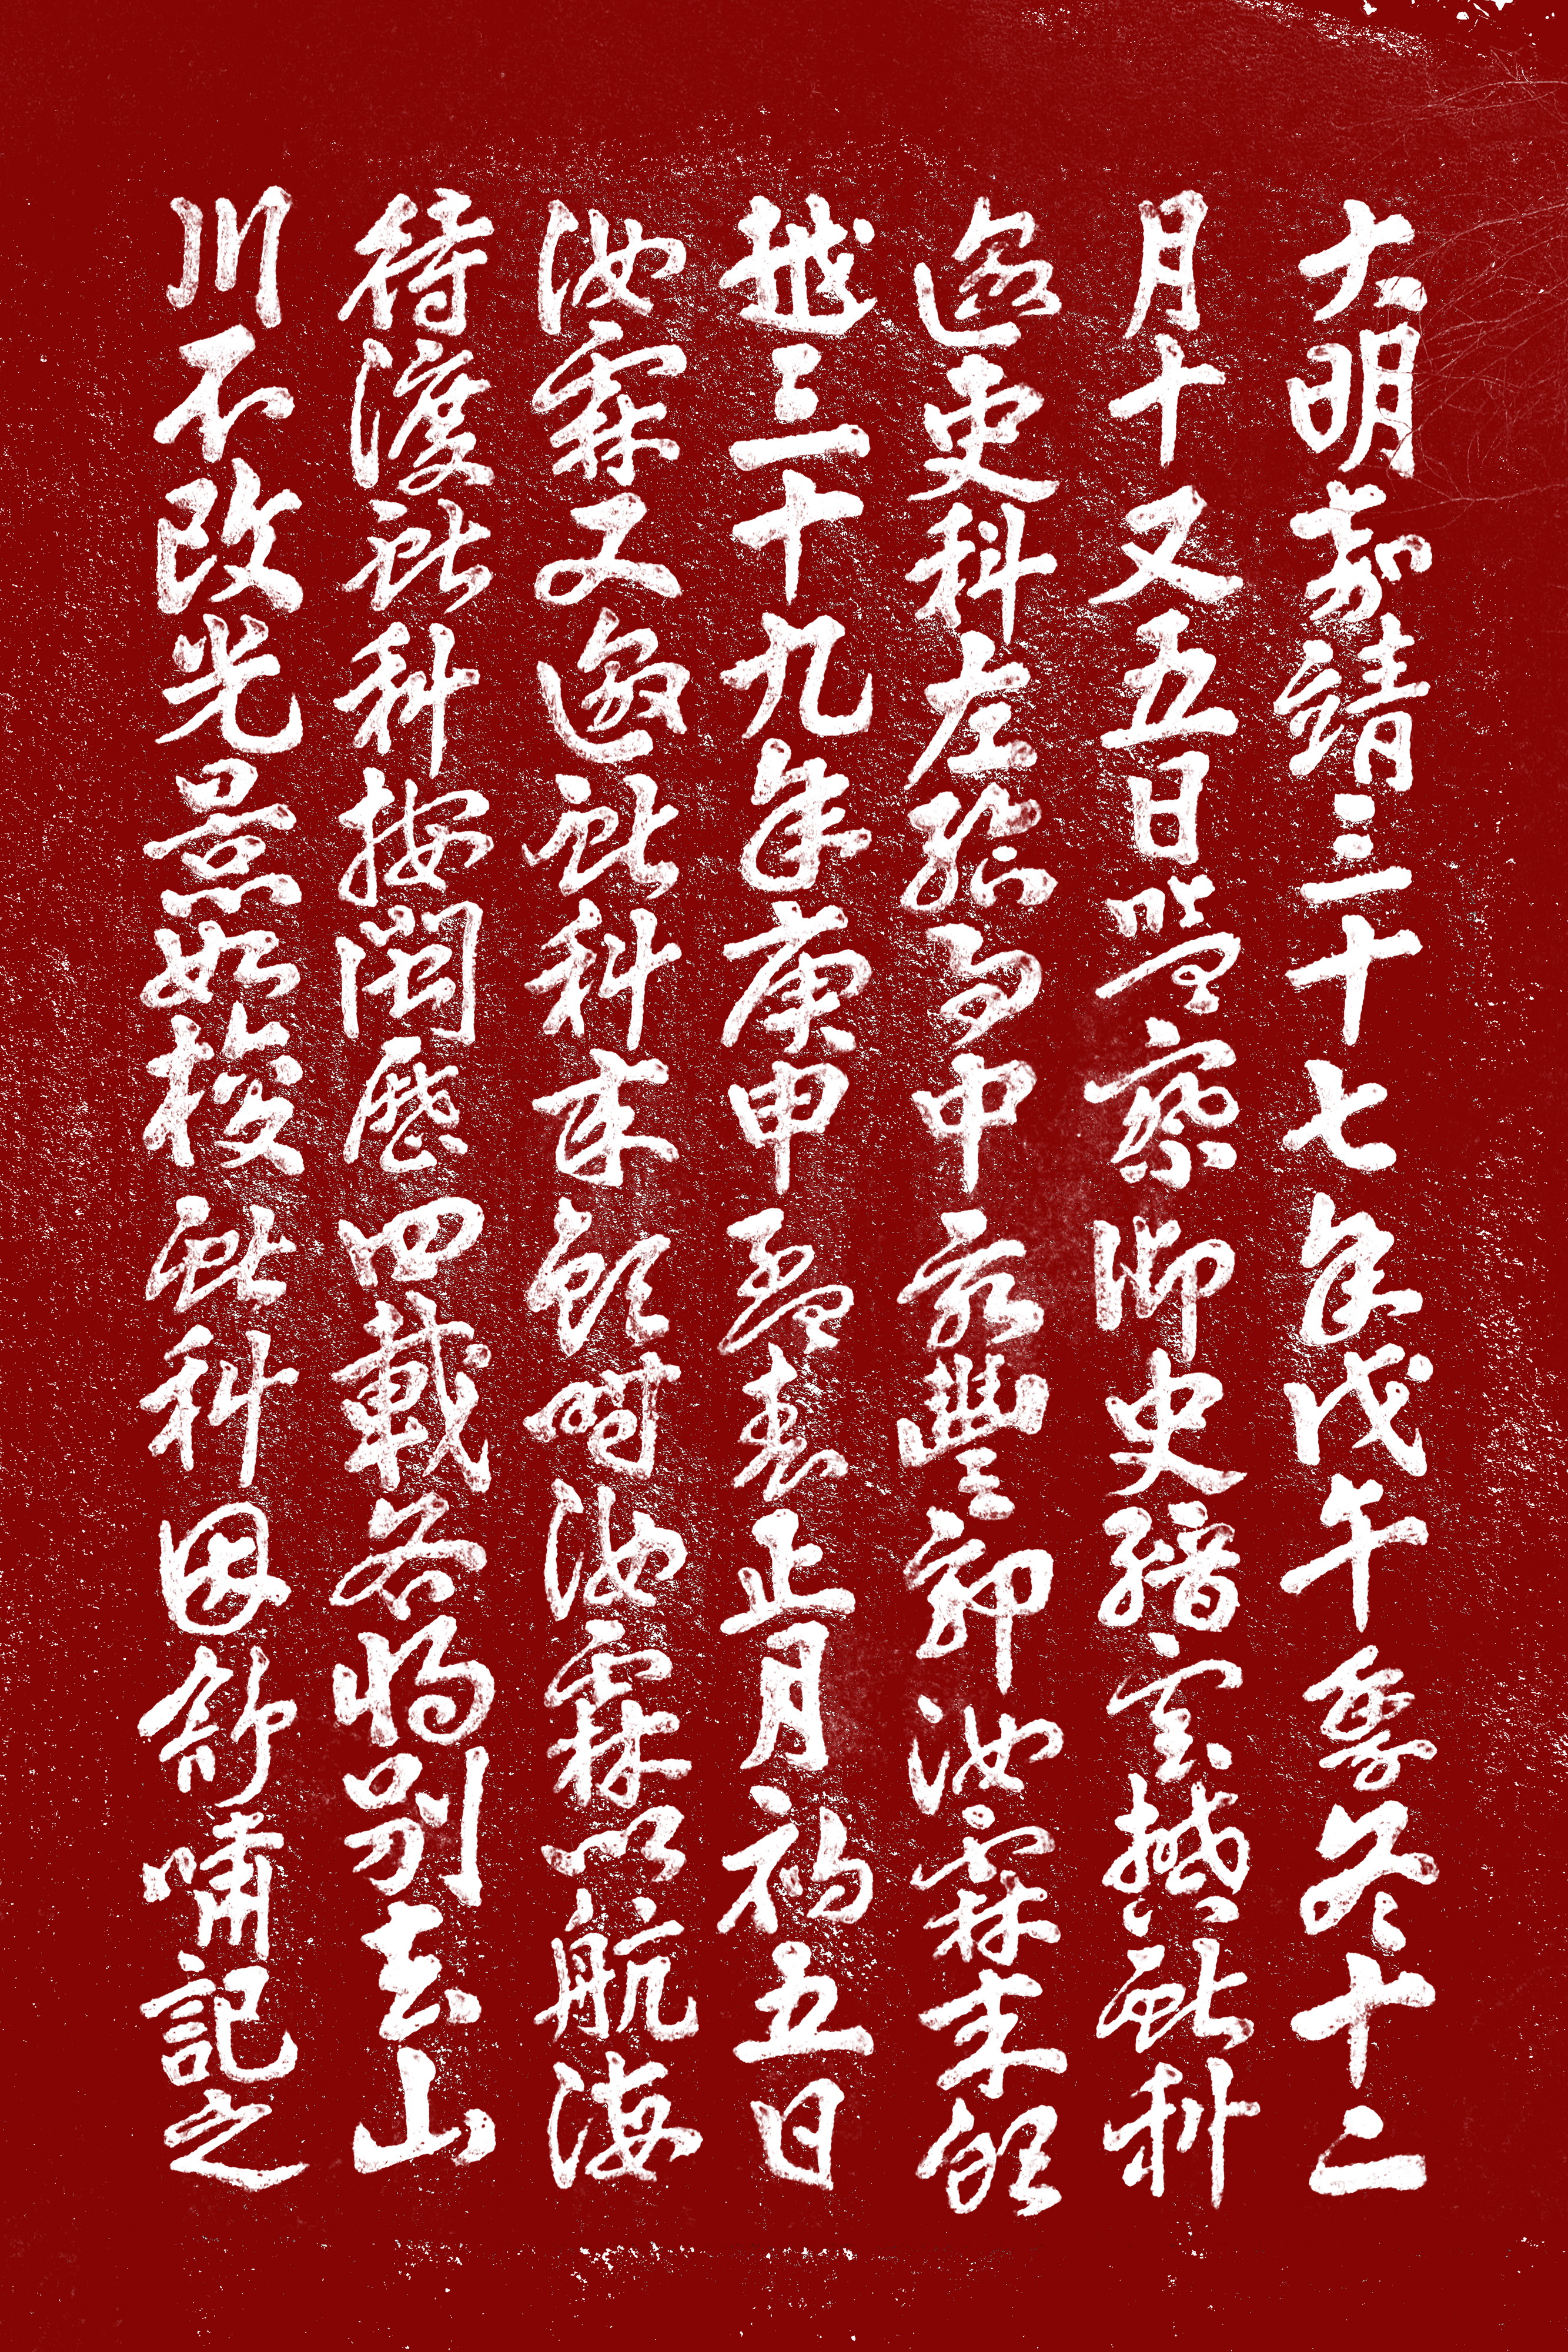 大明嘉靖三十七年戊午季冬十二
月十又五日監察御史縉雲樊獻科
邀吏科左給事中永豐郭汝霖來飲
越三十九年庚申孟春正月初五日
汝霖又邀獻科來飲時汝霖以航海
待渡獻科按閩歷四載各將別去山
川不改光景如梭獻科因舒嘯記之